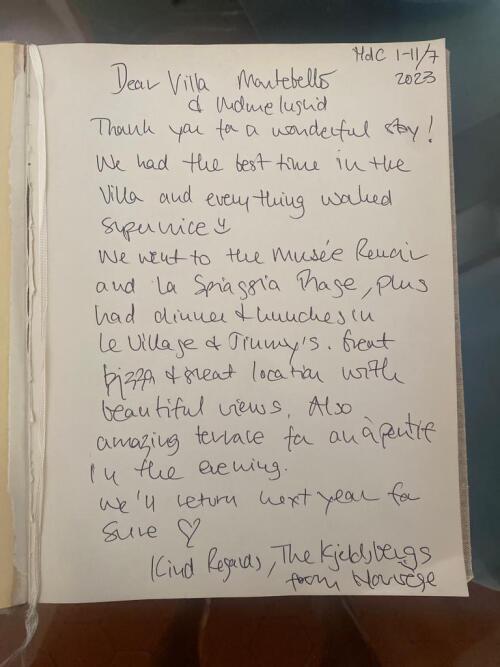 HdC 1-11/7
2023
Dear Villa Montebello
& Mdme Ingrid
Thank you for a wonderful stay!
We had the best time in the
Villa and everything worked
supernice
We went to the Musée Renoir
and La Spiaggia Plage, plus
had dinner & lunches in
Le Village & Jimmy's. Great
pizza & great location with
beautiful views. Also
amazing terrace for an apéritif
in the evening.
We'll return next year for
sure ♡
Kind Regards, The Kjeldsbergs
from Norvège